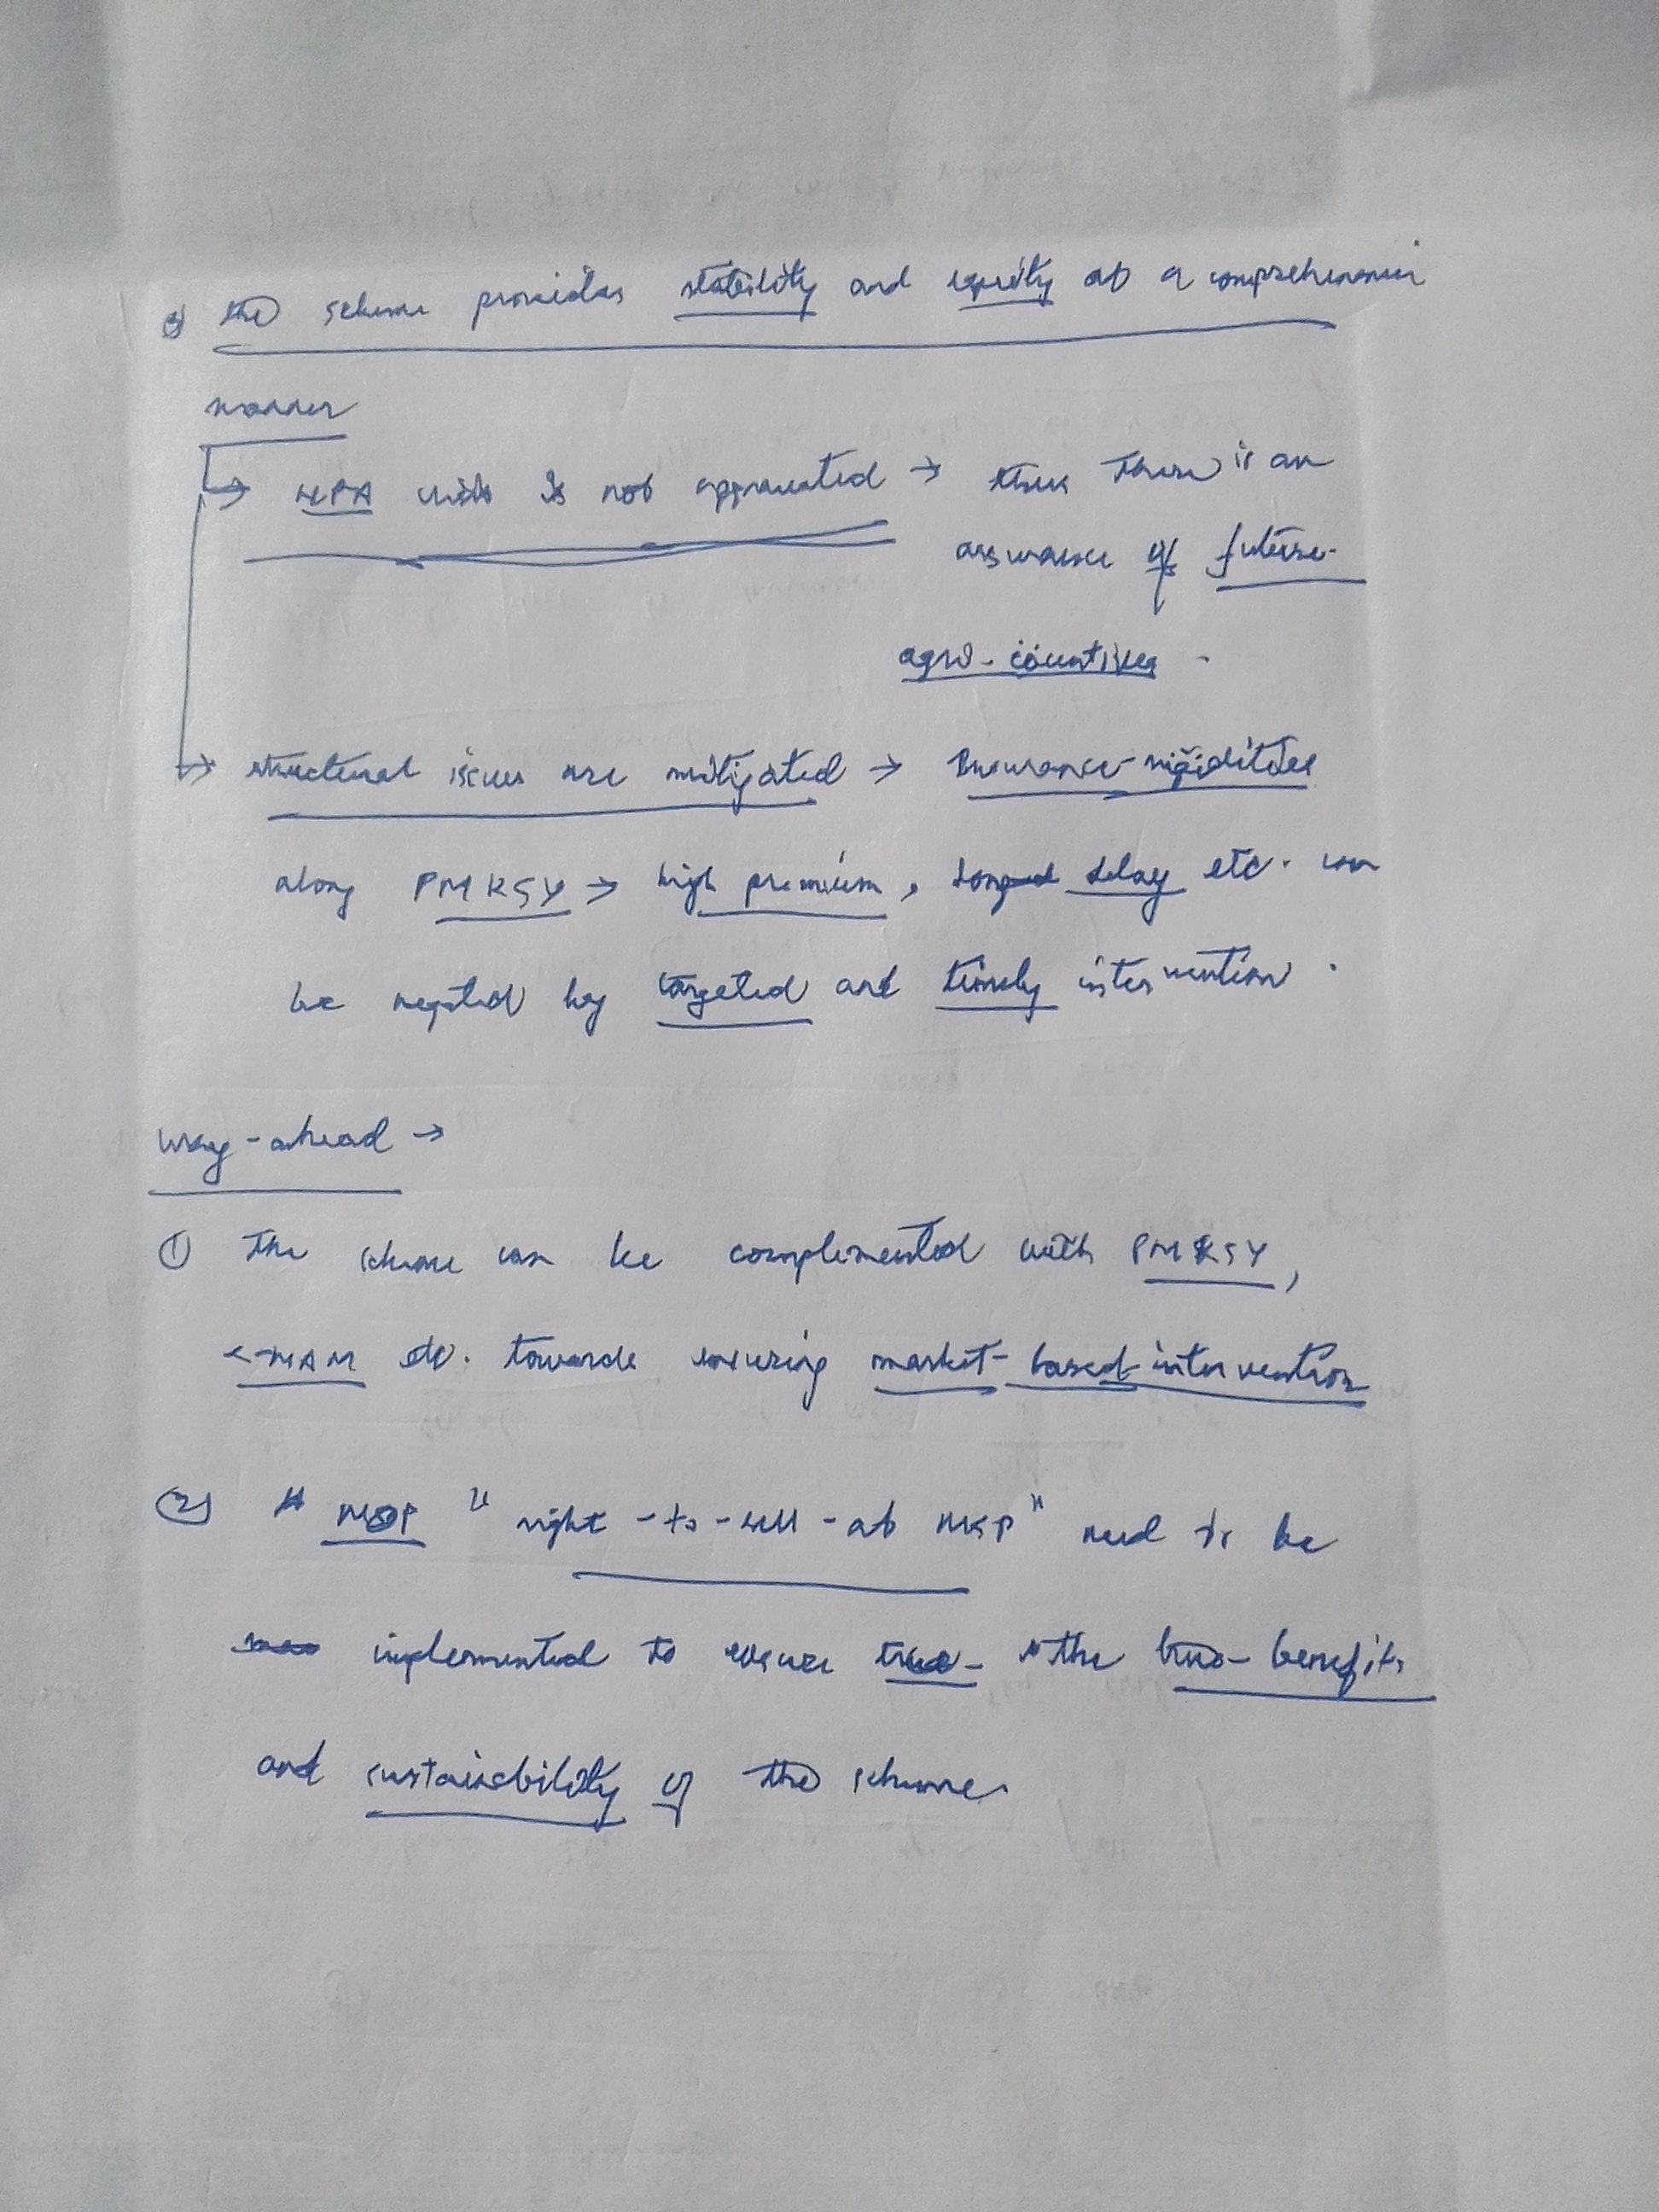 3) the scheme provides stability and equity at a comprehensive
manner
→ NPA crisis is not aggravated → thus there is an
assurance of future-
agro-
→ structural issues are mitigated → Insurance-rigidities
along PMKSY → high premium, delay etc. can
be negated by targeted and timely intervention.
way-ahead →
① The scheme can be complemented with PMKSY,
e-NAM etc. towards ensuring market-based-intervention
② "right-to-sell-at MSP" need to be
implemented to ensure the true-benefits
and sustainability of the scheme.